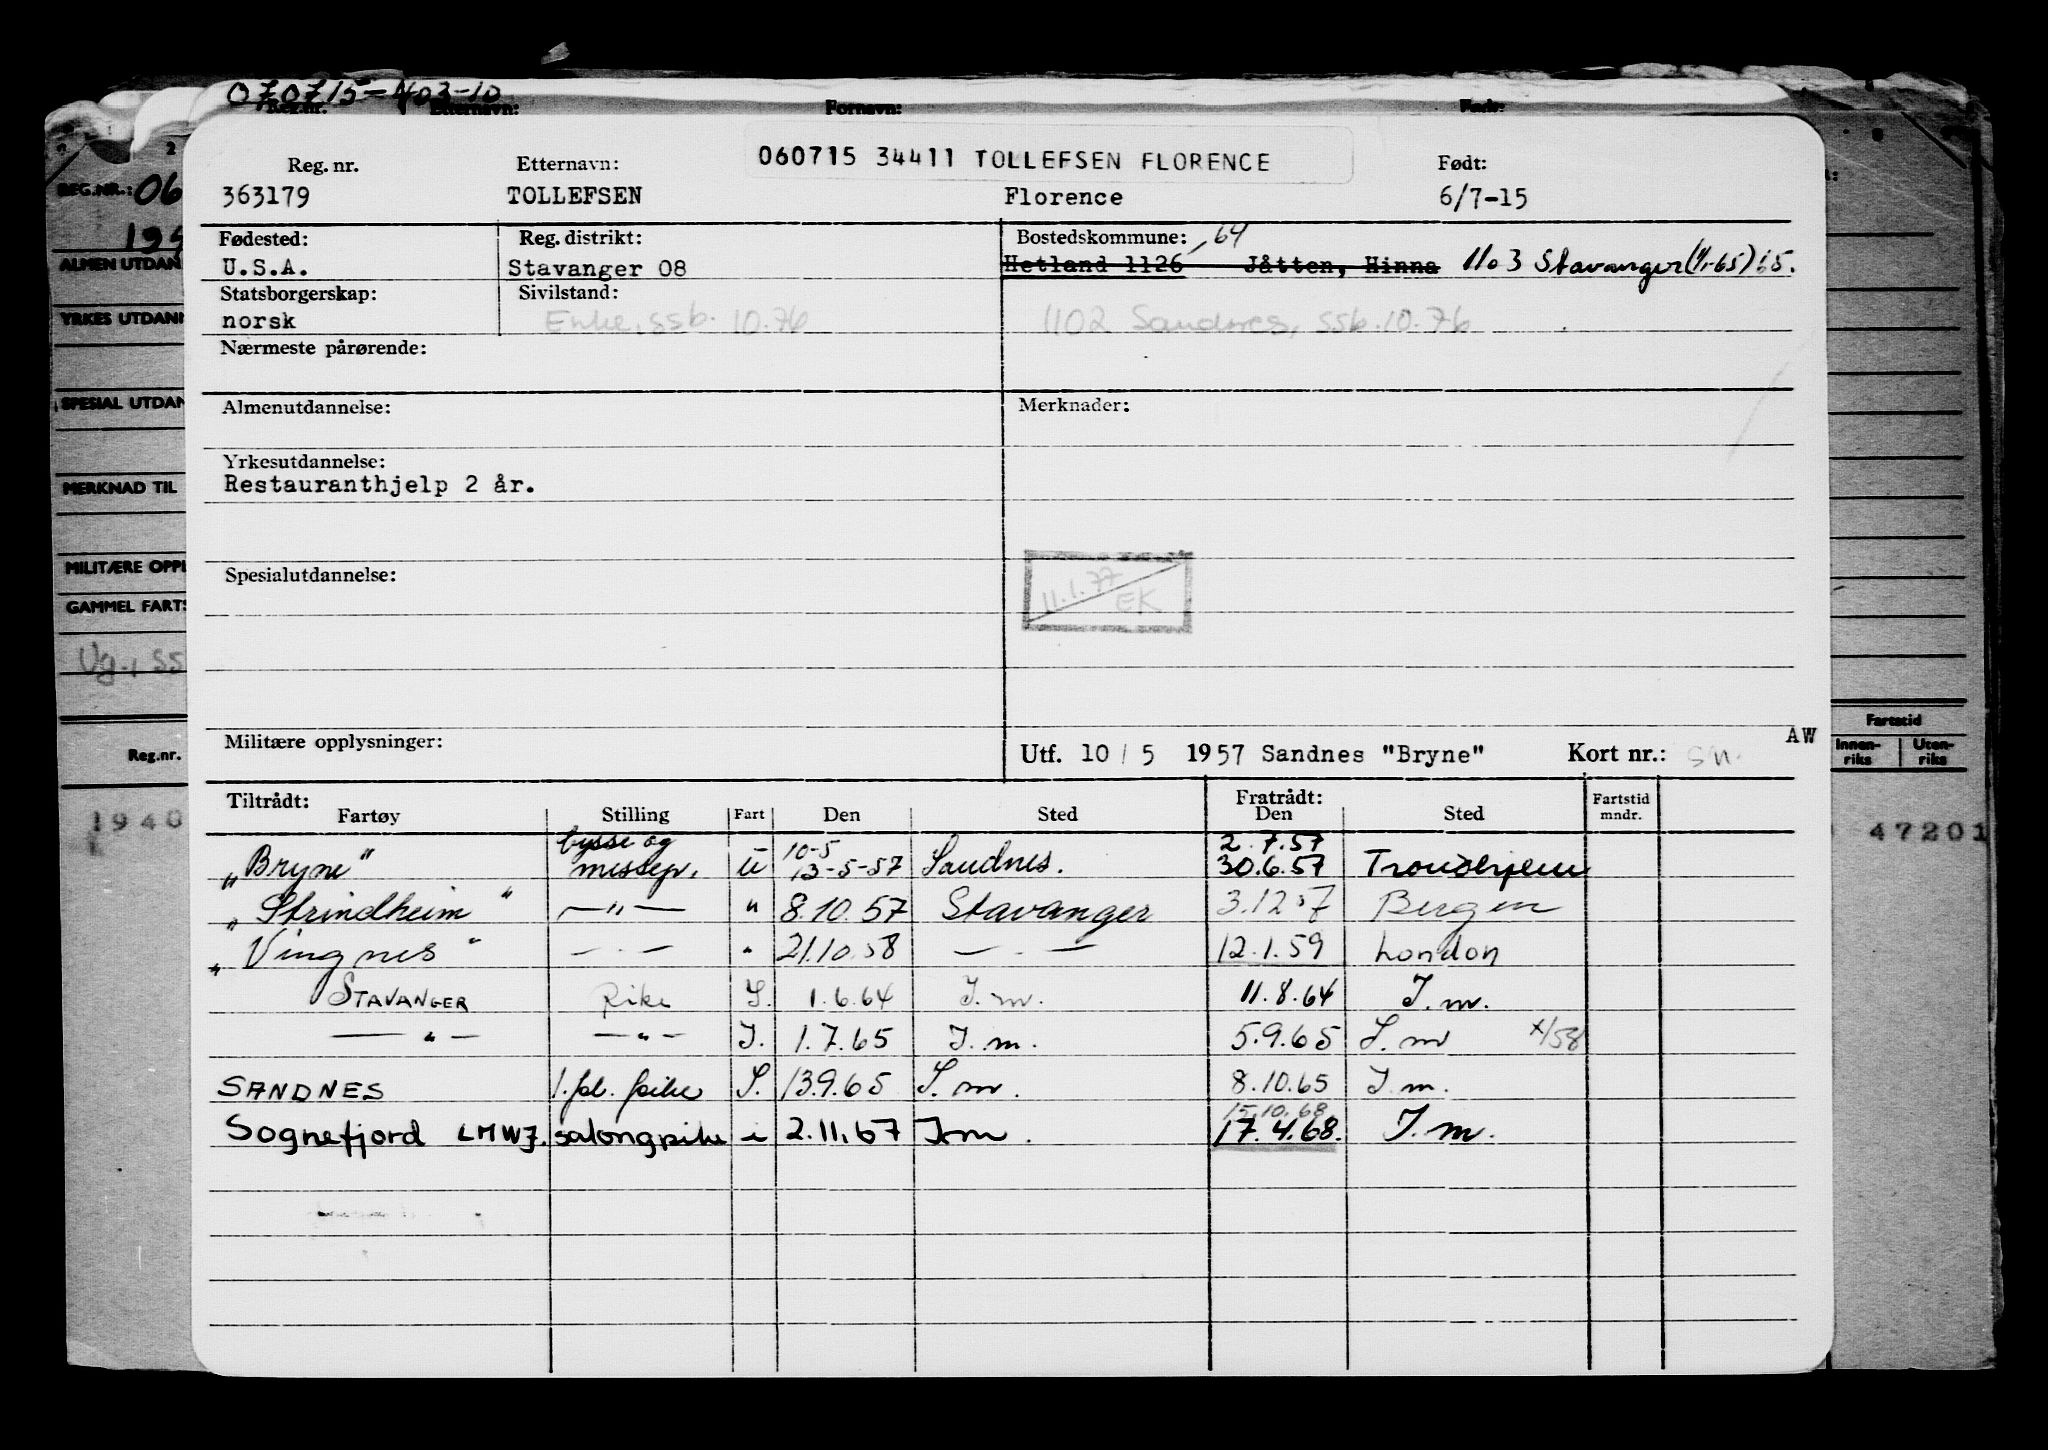 070715-403-10
Reg.nr. Etternavn: Fornavn: Født:
060715 34411 TOLLEFSEN FLORENCE
Reg. nr. Etternavn: Født:
363179 TOLLEFSEN Florence 6/7-15
Fødested: Reg. distrikt: Bostedskommune: 64
U.S.A. Stavanger 08 Hetland 1126 Jåtten, Hinna 1103 Stavanger (1/1-65) 65.
Statsborgerskap: Sivilstand:
norsk Enke, ssb. 10.76 1102 Sandnes, ssb. 10.76
Nærmeste pårørende:
Almenutdannelse: Merknader:
Yrkesutdannelse:
Restauranthjelp 2 år.
Spesialutdannelse:
11.1.77 EK
Militære opplysninger: Utf. 10/5 1957 Sandnes "Bryne" Kort nr.: sn. AW
Tiltrådt: Fratrådt:
Fartøy Stilling Fart Den Sted Den Sted Fartstid mndr.
bysse og 10-5 2.7.57
"Bryne" messep. u 13-5-57 Sandnes. 30.6.57 Trondhjem
"Strindheim" —"— " 8.10.57 Stavanger 3.12.57 Bergen
"Vingnes" — " — " 21.10.58 — " — 12.1.59 London
STAVANGER Pike I. 1.6.64 I.m. 11.8.64 I.m.
— " — — " — I. 1.7.65 I.m. 5.9.65 I.m x/58
SANDNES 1.pl. pike I. 13.9.65 I.m. 8.10.65 I.m.
15.10.68
Sognefjord LMWJ. salongpike i 2.11.67 I.m. 17.4.68. I.m.
REG.NR.: 06
195
ALMEN UTDAN
YRKES UTDANN
SPESIAL UTDAN
MERKNAD TIL
MILITÆRE OPPL
GAMMEL FARTS
Ug., ss
Reg.nr.
1940
Fartstid
Innen-riks Uten-riks
47201